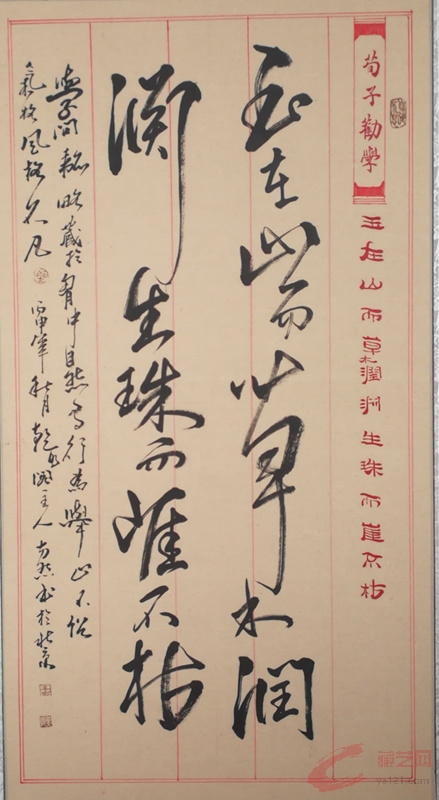 荀子勸學
玉在山而草木潤渊生珠而崖不枯
玉在山而草木润
渊生珠而崖不枯
學问韜略藏於胸中自然行舉止不俗
氣格風格不凡 丙申年秋月主人书於北京